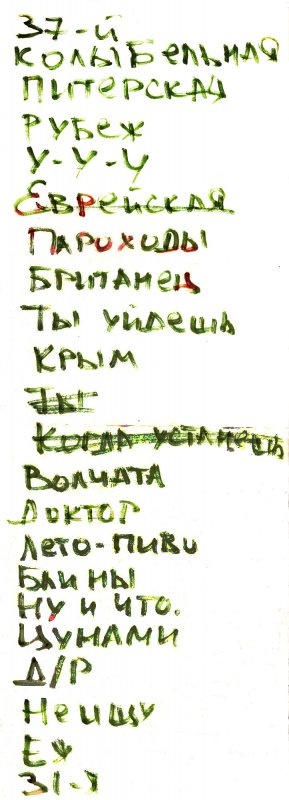 37-й
КОЛЫБЕЛЬНАЯ
ПИТЕРСКАЯ
РУБЕЖ
У-У-У
ЕВРЕЙСКАЯ
ПАРОХОДЫ
БРИТАНЕЦ
ТЫ УЙДЕШЬ
КРЫМ
ТЫ
КОГДА УСТАНЕШЬ
ВОЛЧАТА
ДОКТОР
ЛЕТО-ПИВО
БЛИНЫ
НУ И ЧТО.
ЦУНАМИ
Д/Р
НЕ ИЩУ
31-й